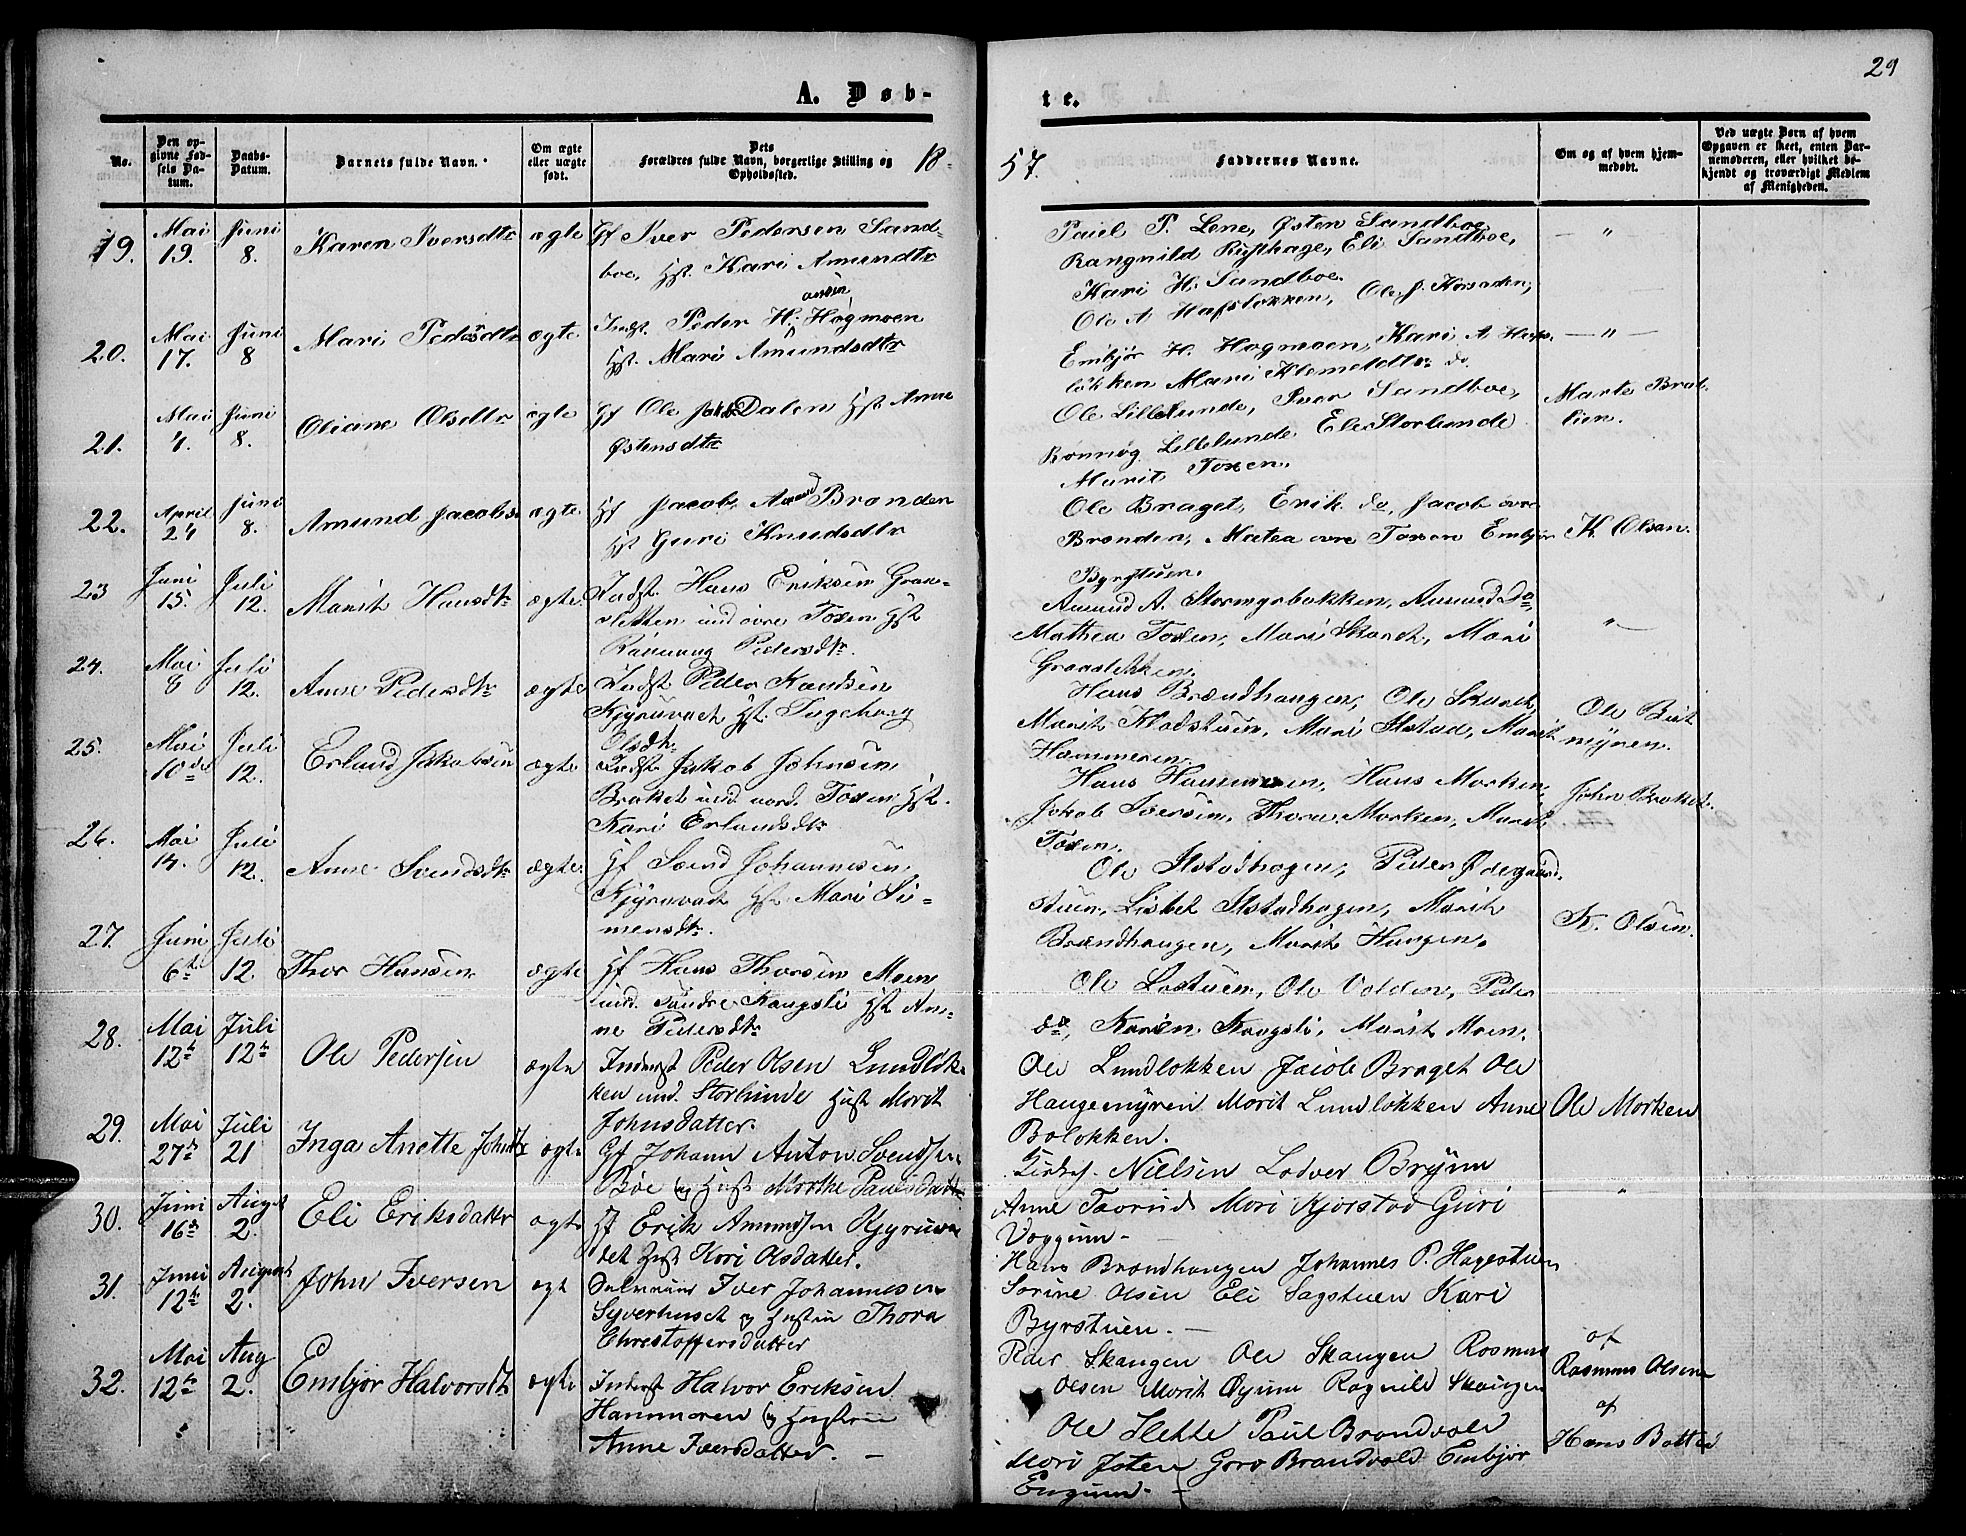 29
A. Døb-
te.
No.
Den op-
givne Fød-
sels Da-
tum.
Daabs-
Datum.
Barnets fulde Navn.
Om ægte
eller uægte
født.
Dets
Forældres fulde Navn, borgerlige Stilling og
Opholdssted.
18
57.
Faddernes Navne.
Om og af hvem hjem-
medøbt.
Ved uægte Børn af hvem
Opgaven er skeet, enten Bar-
nemoderen, eller hvilket be-
kjendt og troværdigt Medlem
af Menigheden.
19. Mai 19. Juni 8. Karen Iversdtr ægte Gf Iver Pedersen Sand-
boe, Hst. Kari Amundtr
Paul P. Lene, Østen Sandboe
Rangnild, Eli Sandboe,
Kari H. Sandboe
20. Mai 17. Juni 8 Mari Pedersdtr ægte Indst. Peder H. Hagmoen
Hst. Mari Amundsdtr
Ole A. Hafsløkken, Ole J.
Embjør H. Hagmoen, Kari A. Hafs-
løkken Mari Klemetdtr do
21. Mai 4. Juni 8. Oliane Olsdtr ægte Gf Ole Dalen Hst Anne
Østensdtr
Ole Lillelunde, Iver Sandboe,
Rønnøg Lillelunde Eli Storlunde
Marit Toxen.
Marte Brat-
lien.
22. April 24 Juni 8. Amund Jacobs. ægte. Hf Jacob Amund Brænden
Hst Guri Knudsdtr
Ole Braget, Erik do, Jacob øvre
Brænden, Matea øvre Toxen Embjør
Byrstuen.
K. Olsen.
23 Juni 15. Juli 12. Marit Hansdtr ægte. Indst. Hans Eriksen Graa-
sletten und øvre Toxen Hst
Rønnaug Pedersdtr.
Amund A. Stormyrbakken, Amund Do,
Mathea Toxen, Mari Skardt, Mari
Graasletten.
24. Mai 8 Juli 12. Anne Pedersdtr ægte Indst Peder Knudsen
Kjyruvadt Hst. Ingeborg
Olsdtr.
Hans Brændhaugen, Ole Skardt,
Marit Kladstuen, Mari Ilstad, Marit
Hammeren.
Ole
myren.
25. Mai 10de Juli 12. Erland Jakobsen ægte Indst Jakob Johnsen
Braket und nord. Toxen Hst.
Kari Erlandsdtr
Hans Hammeren, Hans Morken,
Jakob Iversen, Thore Morken, Marit
Toxen.
John Braket.
26. Mai 14. Juli 12. Anne Svendsdtr ægte. Hf Svend Johannesen
Kjyruvadt Hst Mari Si-
mensdtr.
Ole Ilstadhagen, Peder Ødegaard-
stuen, Lisbet Ilstadhagen, Marit
Brændhaugen, Marit Haugen.
K. Olsen.
27. Juni 6te Juli 12. Thor Hansen ægte Hf Hans Thorsen Moen
und. Søndre Kongsli Hst An-
ne Pedersdtr
Ole, Ole Volden, Peder
do, Karen Kongsli, Marit Moen.
28. Mai 12te Juli 12te Ole Pedersen ægte Inderst Peder Olsen Lundløk-
ken und. Storlunde Hust Marit
Johnsdatter
Ole Lundløkken Jacob Braget Ole
Haugemyren Marit Lundløkken Anne
Boløkken.
Ole Morken
29. Mai 27de Juli 21 Inga Anette Johndtr ægte Gf Johann Anton Svendsen
Bøe og Hust Marthe Paulsdatter
Nielsen Lodver Brynn
Anne Mari Kjørstad Guri
Vaggum
30. Juni 16de August 2. Eli Eriksdatter ægte Hf Erik Amundsen Kjyruva-
det Hust Kari Olsdatter.
Hans Brændhaugen Johannes P. Hagestuen
Sorine Olsen Eli Sagstuen Kari
Byrstuen.
31. Juni 12te August 2. John Iversen ægt Iver Johannesen
Syverhuset og Hustru Thora
Christoffersdatter
Peder Skaugen Ole Skaugen Rasmus
Olsen Marit Øyum Ragnild Skaugen
af
Rasmus Olsen
32. Mai 12te Aug 2. Embjør Halvorsdt ægte Inderst Halvor Eriksen
Hammeren og Hustru
Anne Iversdatter.
Ole Slette Paul Brandvold
Mari Joten Goro Brandvold Embjør
Engum
af
Hans